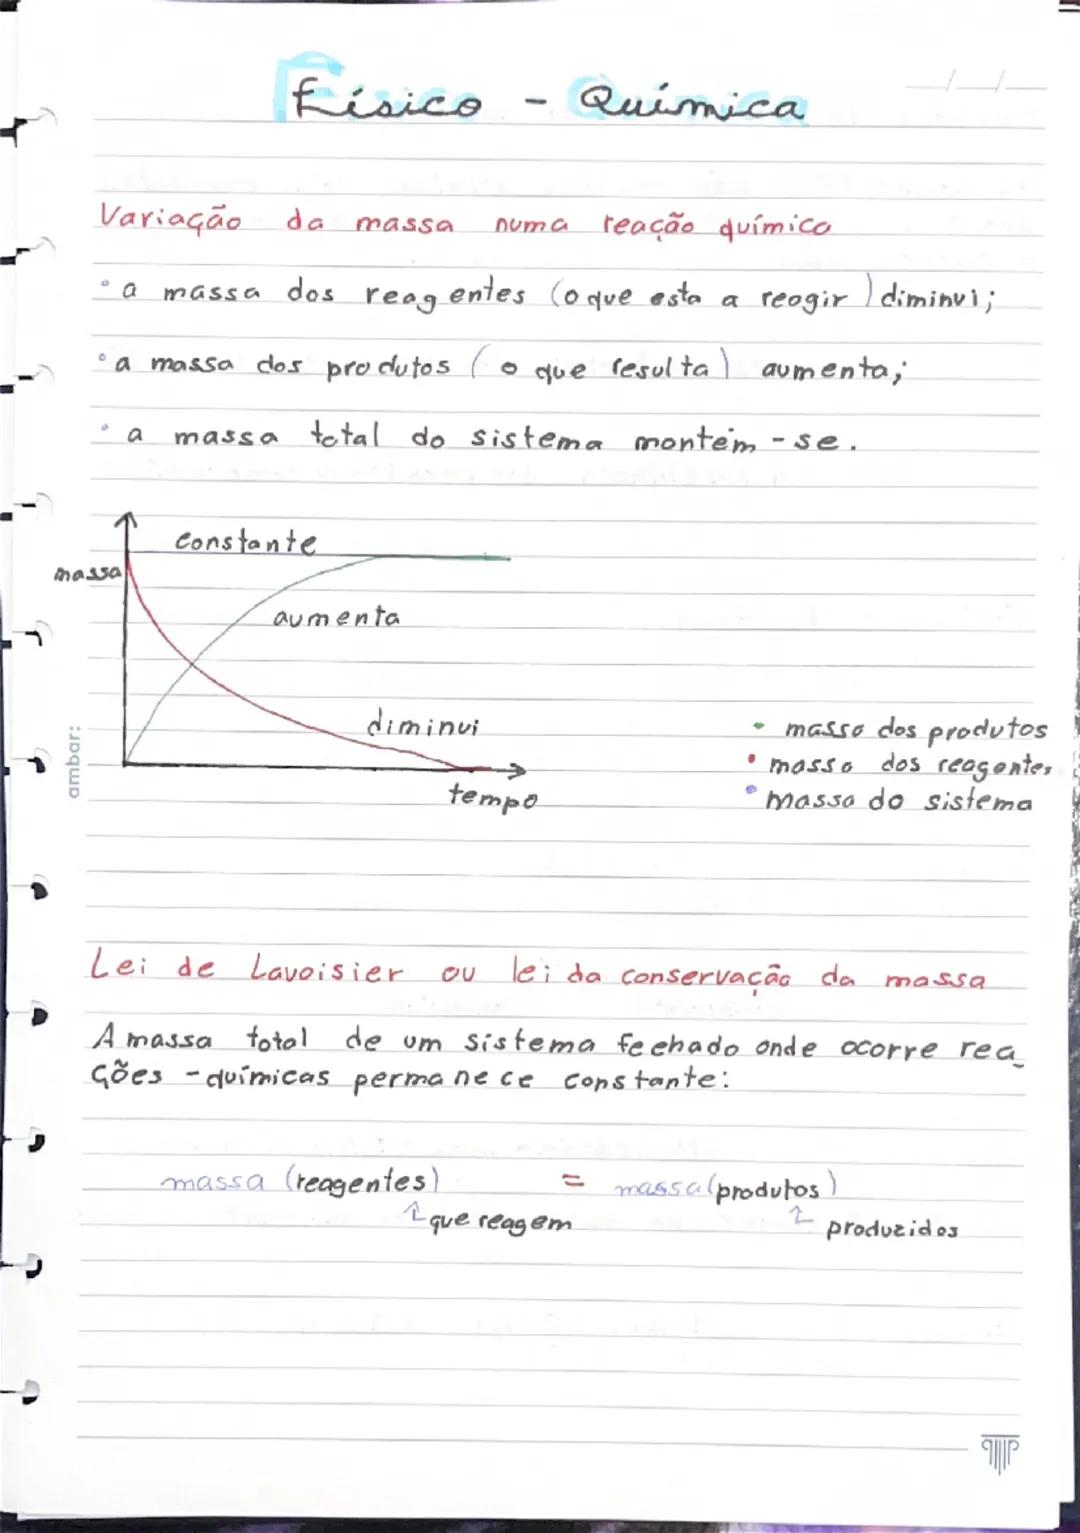 Físico - Química
Variação da massa numa reação químico
• a massa dos reagentes (o que esta a reogir) diminui;
• a massa dos produtos (o que resulta) aumenta;
• a massa total do sistema montém-se.
constante
massa
aumenta
diminui
tempo
• masso dos produtos
• masso dos reagentes
• massa do sistema
ambar:
Lei de Lavoisier ou lei da conservação da massa
A massa total de um sistema fechado onde ocorre rea_
ções - químicas permanece constante:
massa (reagentes) = massa (produtos)
que reagem produzidos